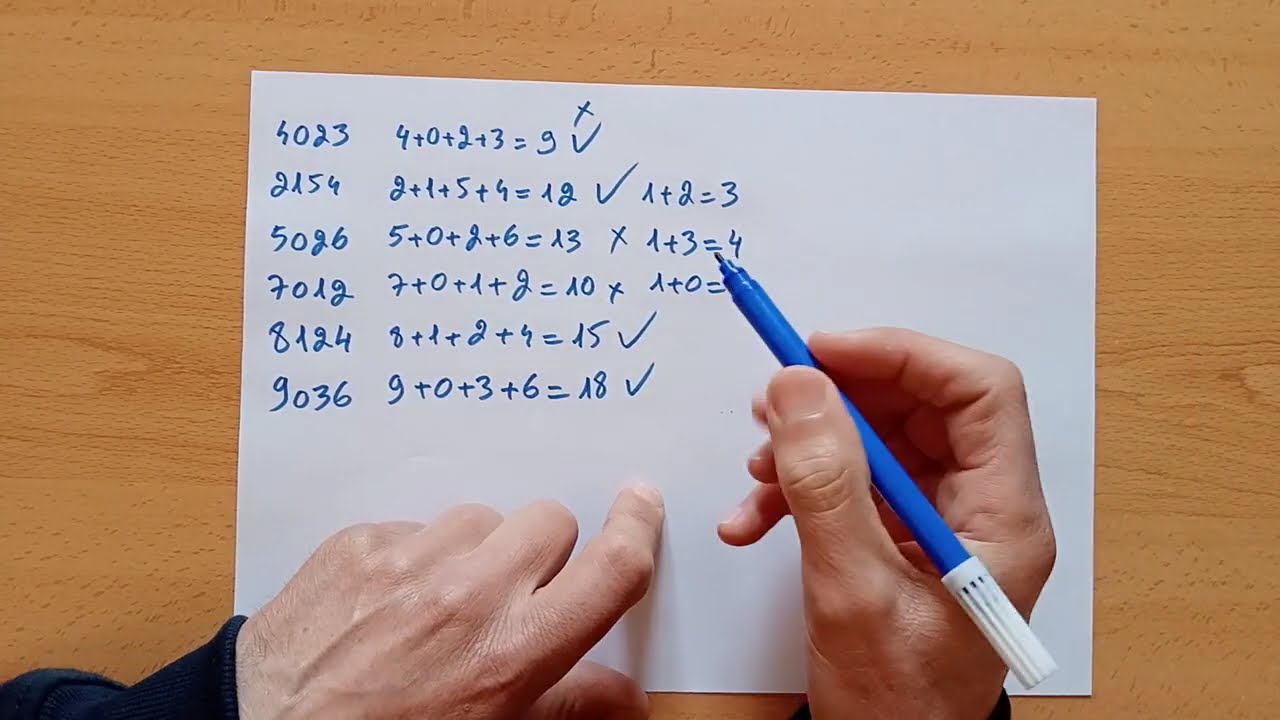 4023 4+0+2+3=9 x ✓
2154 2+1+5+4=12 ✓ 1+2=3
5026 5+0+2+6=13 x 1+3=4
7012 7+0+1+2=10 x 1+0=
8124 8+1+2+4=15 ✓
9036 9+0+3+6=18 ✓